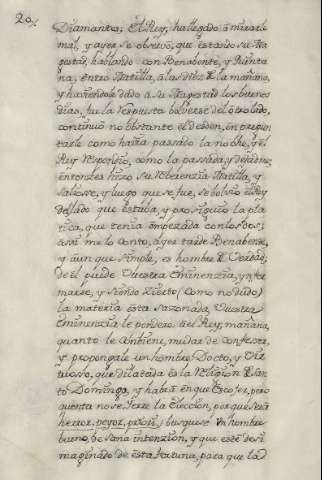 20,,
Diamantes; El Rey, ha llegado à mirarle
mal, y ayer se observò, que estando su Ma
gestad, hablando con Benabente, y Quinta
na, entrò Matilla, à las diez de la mañana,
y haviendole dado a su Magestad los buenos
dias, fue la respuesta bolverse del otro lado,
continuò no obstante el desden, en pregun
tarle como havia passado la noche, y el
Rey respondiò, como la passada, y dejadme;
entonzes hizo su reverenzia Matilla, y
saliosse, y luego que se fue, se bolviò el Rey
del lado que estaba, y prosiguiò la pla
tica, que tenia empezada con los dos;
assi me lo contò, ayer tarde Benabente,
y aun que simple, es hombre de verdad;
de èl puede Vuestra Eminenzia, ynfor
marse, y siendo zierto (como no dudo)
la materia està sazonada, Vuestra
Eminenzia le pondere al Rey, mañana,
quanto le conbiene, mudar de Confesor,
y propongale un hombre, Docto, y Vir
tuosso, que dilatada es la Religion de San
to Domingo, y habrà en que escojer, pero
quenta no se yerre la eleccion, por que serà
herror, peyor, priori; busquese un hombre
bueno, de sana intenzion, y que estè desi
maginado de esta fortuna, para que la d